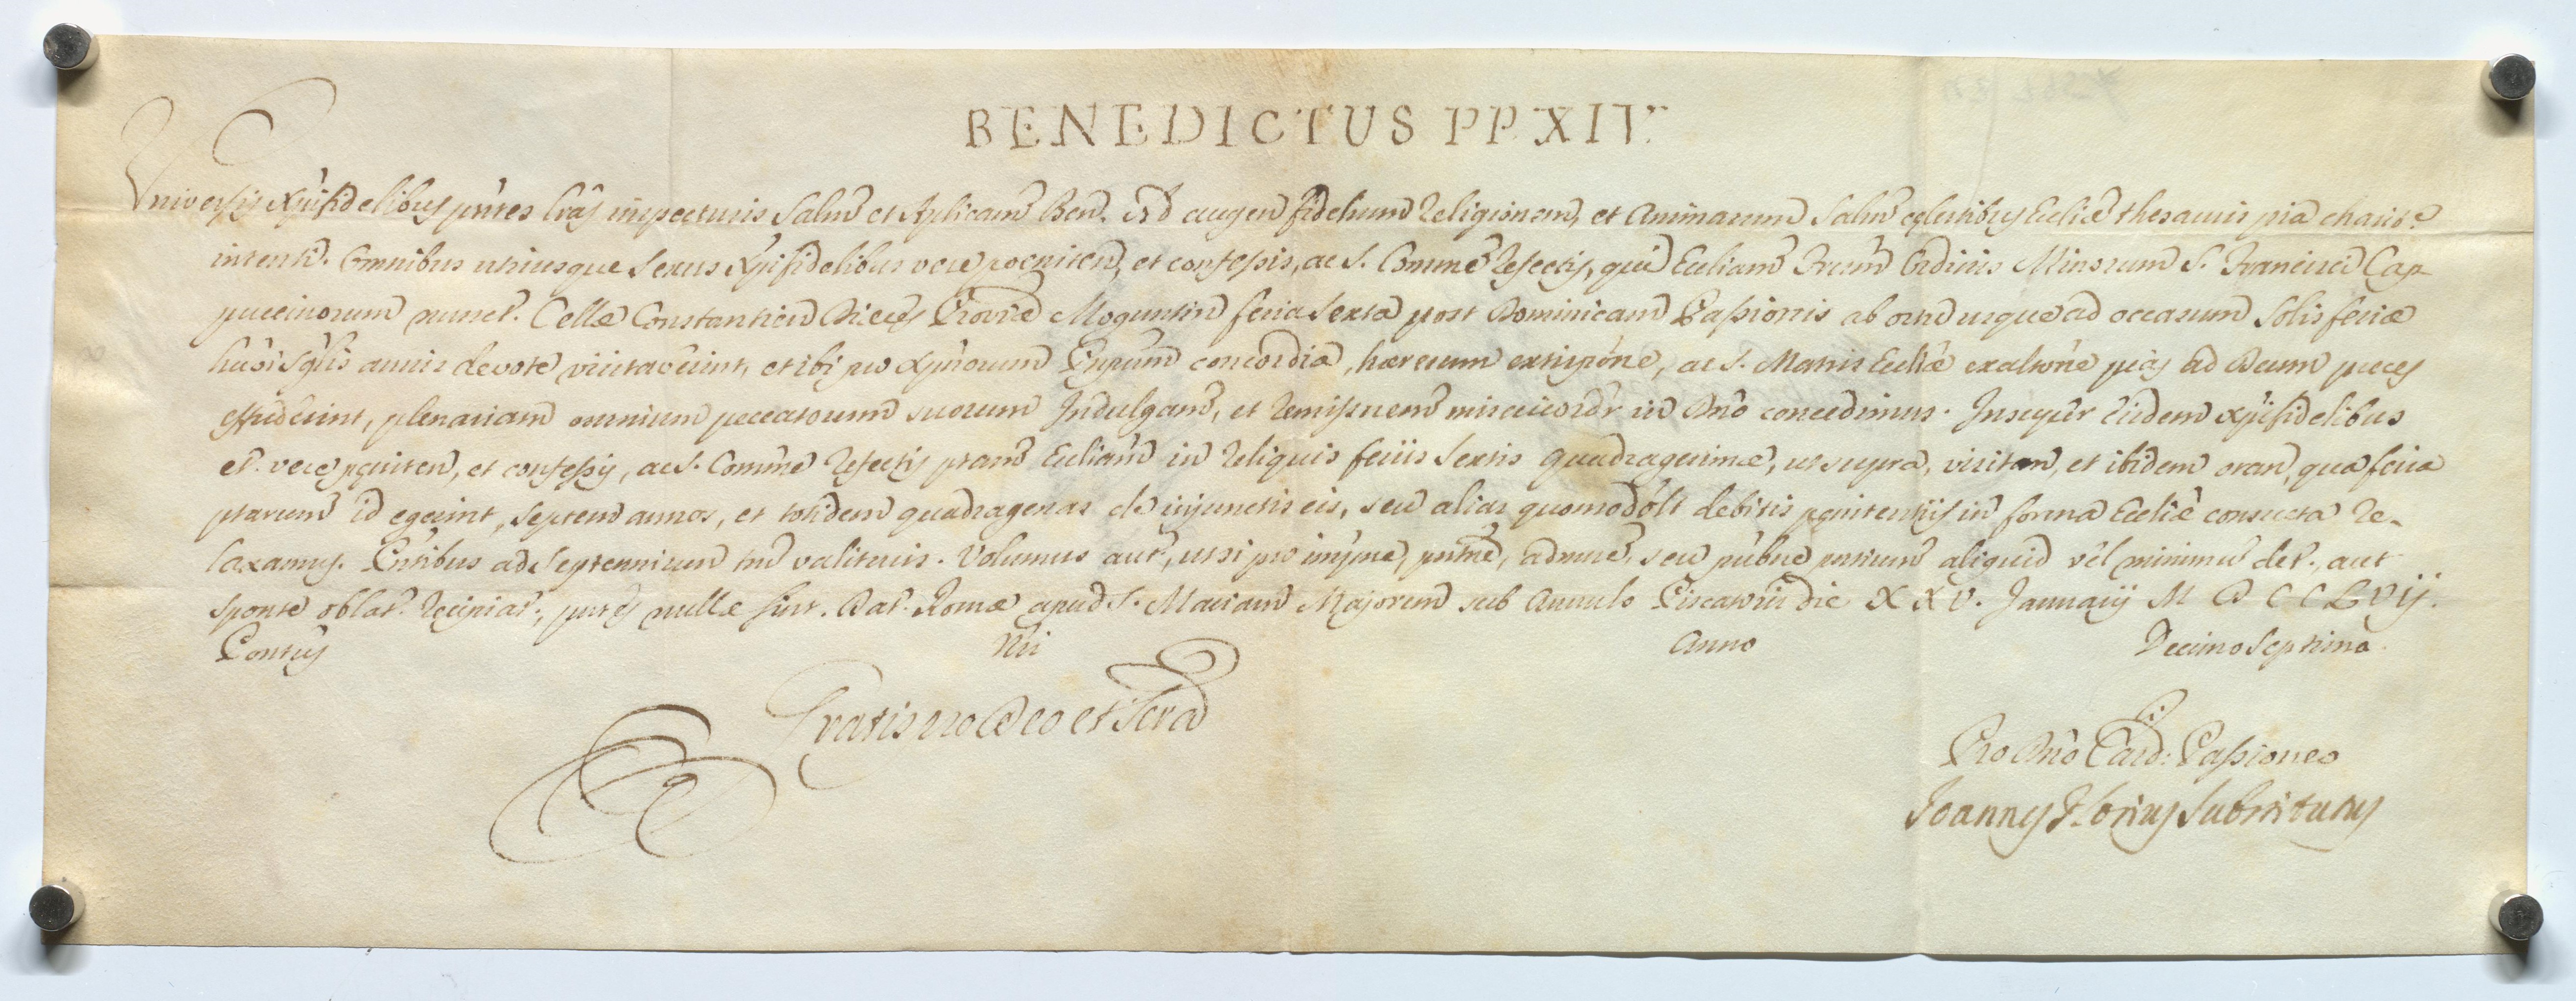 BENEDICTUS PP. XIV.
Universis Xp̃ifidelibus pñtes lr̃as inspecturis Salm̃ et Ap̃licam̃ Ben. Ad augen fidelium Religionem, et Animarum Salm̃ cęlestibus Ecclię thesauris pia charitẽ
intenti. Omnibus utriusque sexus Xp̃ifidelibus vere poeniten, et confessis, ac S. Comm̃e Refectis, qui Eccliam̃ Frum̃ Ordinis Minorum S. Francisci Cap
puccinorum nunct. Cellæ Constantien Diecẽs Provĩæ Moguntin feria sexta post Dominicam Passionis ab ortu usque ad occasum Solis feriæ
hmõi sglĩs annis devote visitaverint, et ibi pro Xp̃norum Pnpum̃ concordia, hæresum extirpõne, ac S. Matris Eccliæ exaltõne pias ad Deum preces
effuderint, plenariam omnium peccatorum suorum Indulgam̃, et remissnem̃ misericordr̃ in Dnõ concedimus. Insuper eisdem Xp̃ifidelibus
et. vere pęniten, et confessis, ac S. Comm̃e Refectis ptam̃ Eccliam̃ in Reliquis feriis sextis quadragesimæ, ut supra, visitan, et ibidem oran, qua feria
ptarum̃ id egerint, septem annos, et totidem quadragenas de injunctis eis, seu alias quomodolt debitis pęnitentiis in forma Eccliæ consueta Re-
laxamus. Pñtibus ad Septennium tm̃ valituris. Volumus aut, ut si pro impne, pñtne, admne, seu publne pntium̃ aliquid vel minimũ det. aut
sponte oblat. Recipiat., pntes nullæ sint. Dat. Romæ apud S. Mariam Majorem sub Annulo Piscatoris die XXV. Januarij MDCCLVij.
Pontus Nri Anno Decimo Septimo.
Gratis pro Deo et Scra
Pro Dnõ Card: Passioneo
Joannes Florius Substitutus